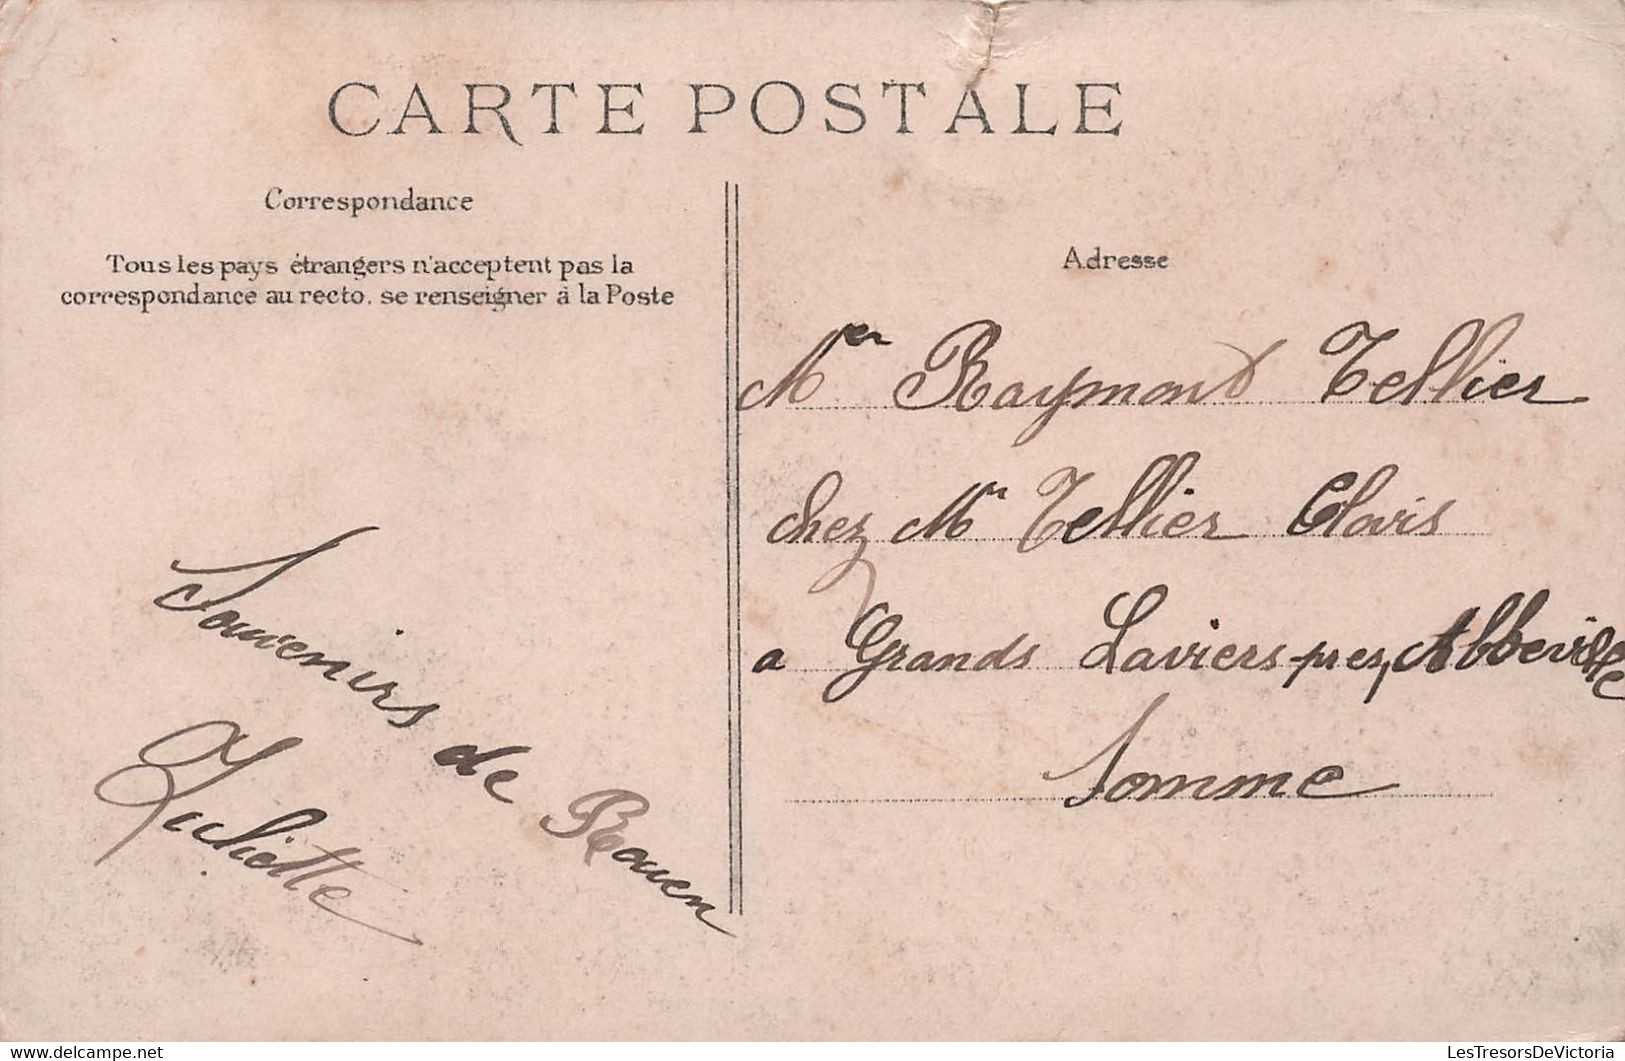 CARTE POSTALE
Correspondance
Tous les pays étrangers n'acceptent pas la
correspondance au recto. se renseigner à la Poste
Souvenirs de Rouen
Juliette
Adresse
Mer Raymond Tellier
chez Mr Tellier Clovis
a Grands Laviers pres Abbeville
Somme
LesTresorsDeVictoria